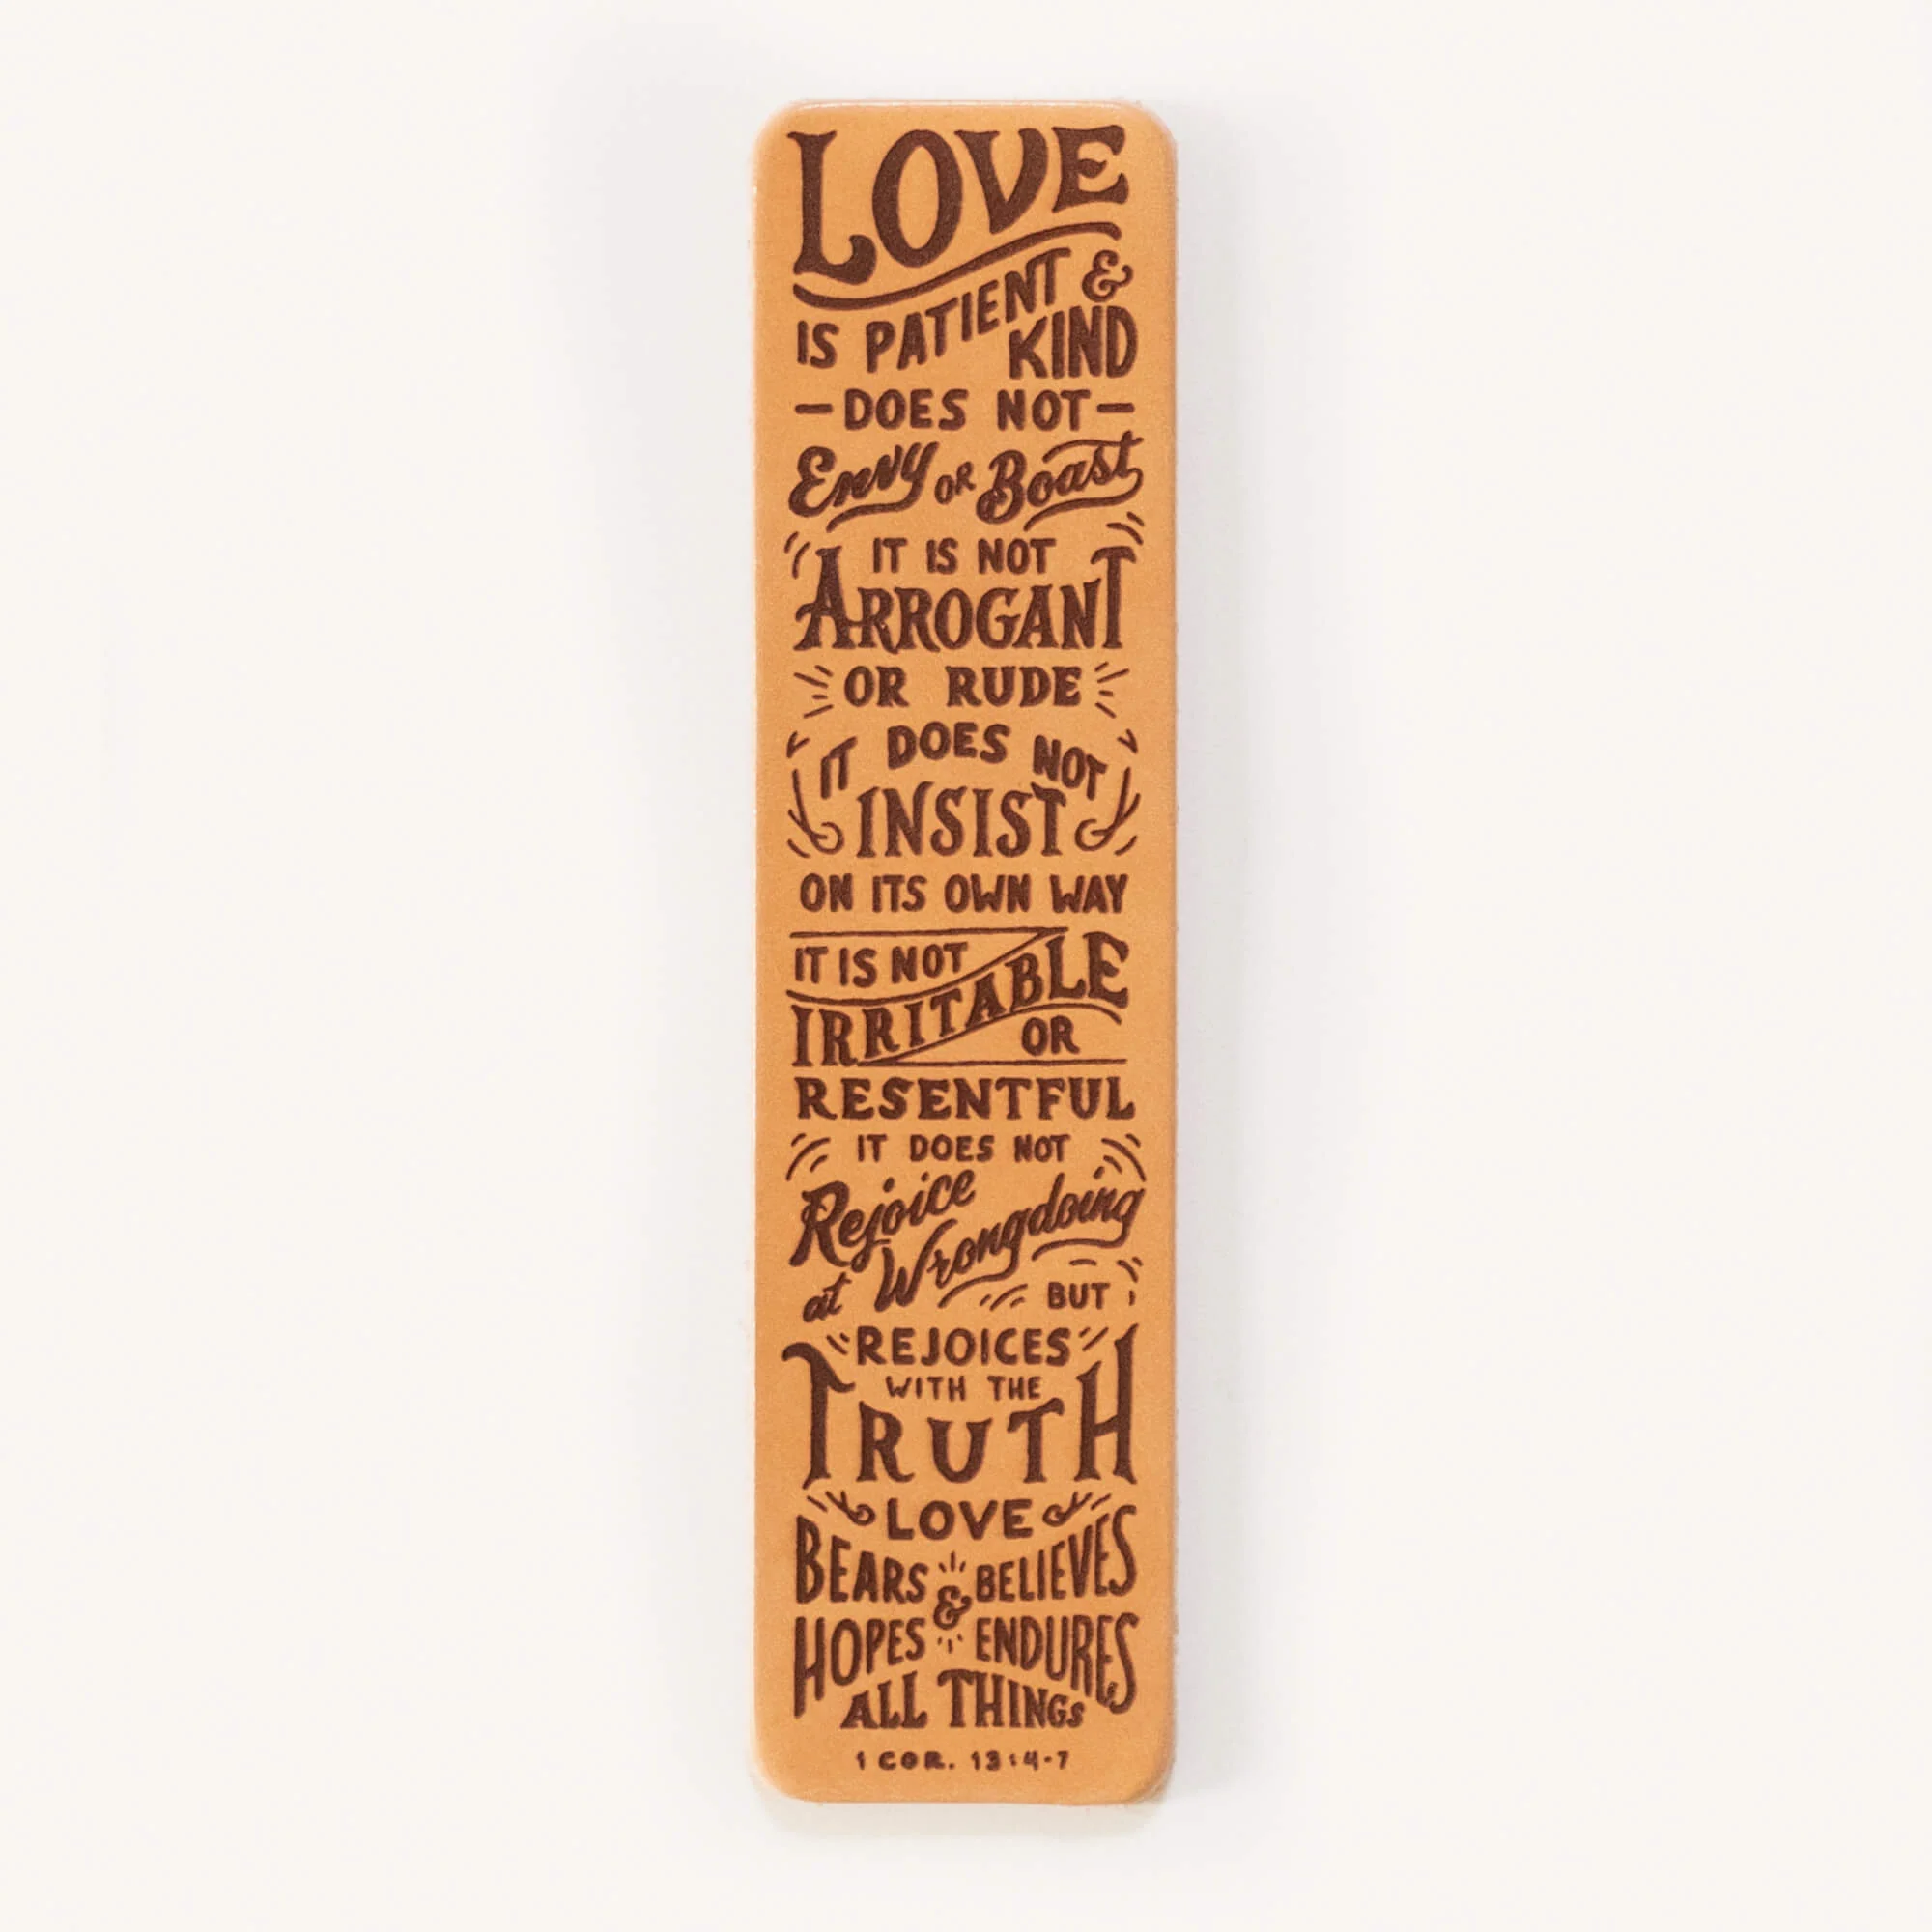 LOVE
IS PATIENT &
KIND
-DOES NOT-
Envy OR Boast
IT IS NOT
ARROGANT
OR RUDE
IT DOES NOT
INSIST
ON ITS OWN WAY
IT IS NOT
IRRITABLE
OR
RESENTFUL
IT DOES NOT
Rejoice
at Wrongdoing
BUT
REJOICES
WITH THE
TRUTH
LOVE
BEARS & BELIEVES
HOPES ENDURES
ALL THINGS
1 COR. 13:4-7